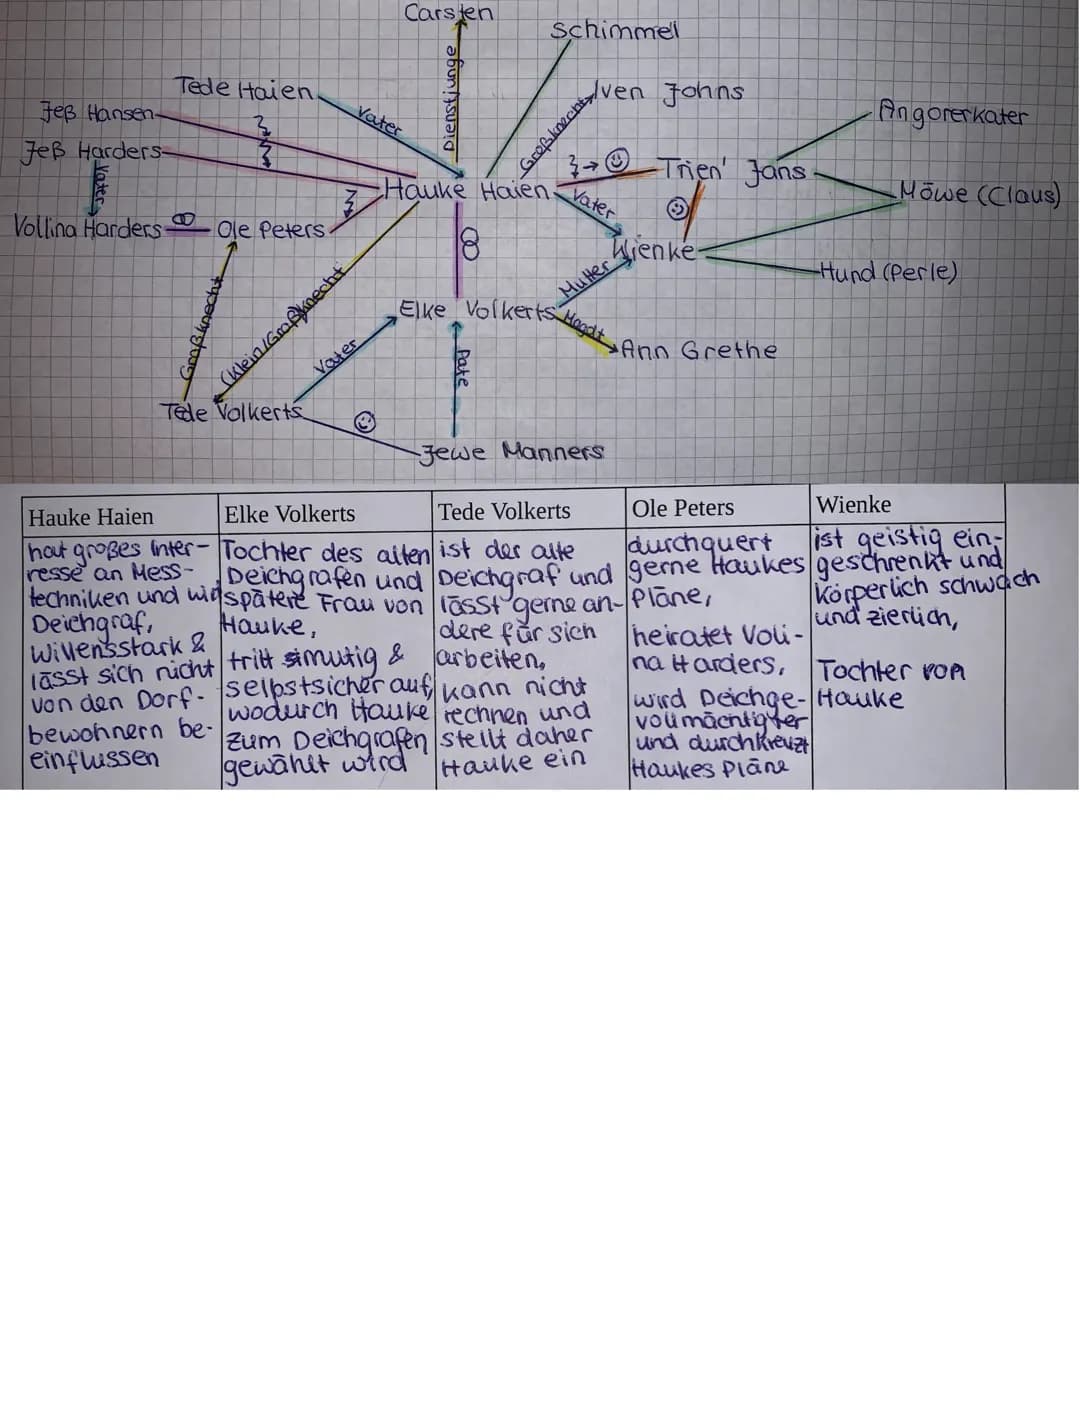 Carsten
Schimmel
Dienstjunge
Tede Haien
Vater
Iven Johns
Großknecht
Jeß Hansen
Angorerkater
Jeß Harders
Vater
Trien' Jans
Hauke Haien
Vater
Möwe (Claus)
Vollina Harders
Ole Peters
Wienke
Mutter
Hund (Perle)
Großknecht
(Klein/Großknecht
Elke Volkerts
Magdt
Vater
Pate
Ann Grethe
Tede Volkerts
Jewe Manners
Hauke Haien
hat großes Inter-
resse an Mess-
techniken und wird
Deichgraf,
willensstark &
lässt sich nicht
von den Dorf-
bewohnern be-
einflussen
Elke Volkerts
Tochter des alten
Deichgrafen und
spätere Frau von
Hauke,
tritt mutig &
selbstsicher auf,
wodurch Hauke
zum Deichgrafen
gewählt wird
Tede Volkerts
ist der alte
Deichgraf und
lässt gerne an-
dere für sich
arbeiten,
kann nicht
rechnen und
stellt daher
Hauke ein
Ole Peters
durchquert
gerne Haukes
Pläne,
heiratet Voli-
na Harders,
wird Deichge-
vollmächtigter
und durchkreuzt
Haukes Pläne
Wienke
ist geistig ein-
geschrenkt und
körperlich schwach
und zierlich,
Tochter von
Hauke